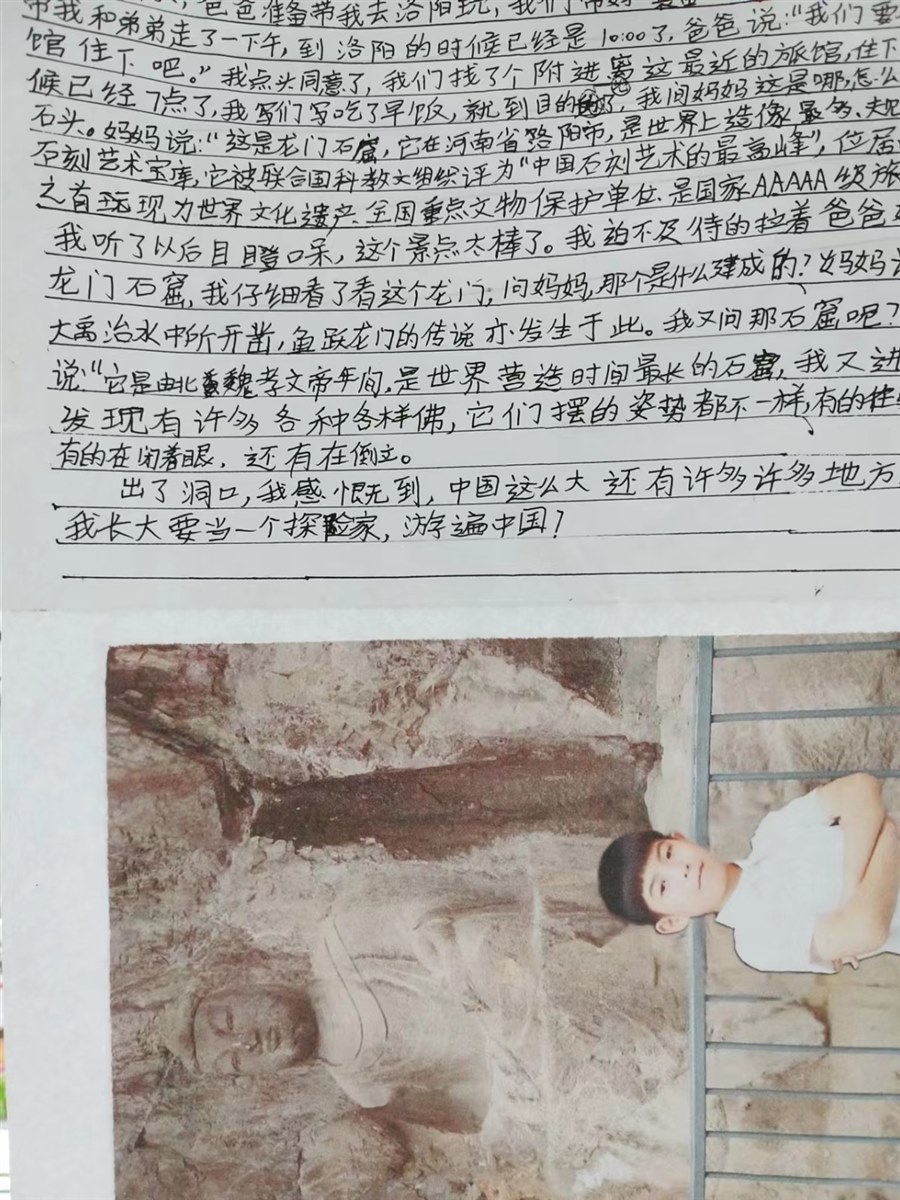 带我和弟弟走了一下午,到洛阳的时候已经是10:00了,爸爸说:“我们要
馆住下吧。”我点头同意了,我们找了个附进离这最近的旅馆,住下
候已经7点了,我们吃了早饭,就到目的了,我间妈妈这是哪,怎么
石头。妈妈说:“这是龙门石窟,它在河南省路阳市,是世界上造像最多、
石刻艺术宝库,它被联合国科教文组织评为“中国石刻艺术的最高峰”,位居
之首玩现为世界文化遗产、全国重点文物保护单位、是国家AAAAA级旅
我听了以后目瞪口呆,这个景点太棒了。我迫不及侍的拉着爸爸
龙门石窟,我仔细看了看这个龙门,问妈妈,那个是什么建成的?妈妈
大禹治水中所开凿,鱼跃龙门的传说亦发生于此。我又问那石窟呢?
说:“它是由北魏孝文帝年间,是世界营造时间最长的石窟,我又进
发现有许多各种各样佛,它们摆的姿势都不一样,有的
有的在闭着眼,还有在倒立。
出了洞口,我感恨无到,中国这么大还有许多许多地方
我长大要当一个探险家,游遍中国?